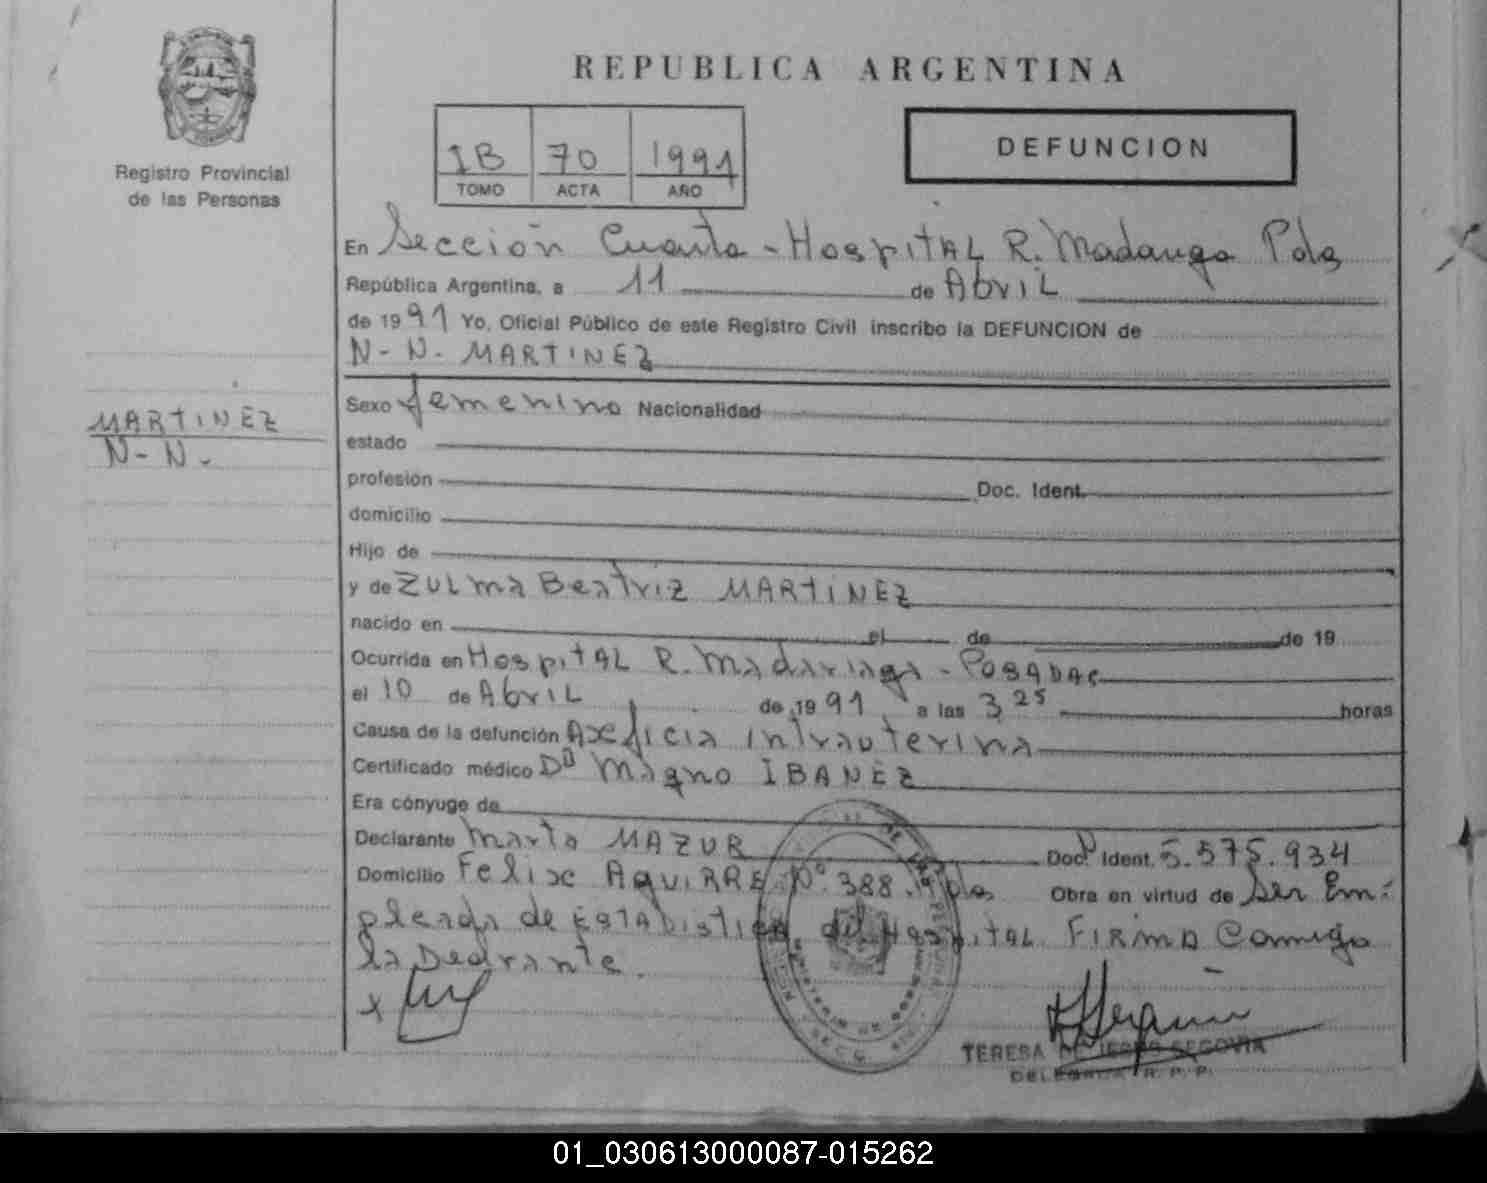 REPUBLICA ARGENTINA
Registro Provincial
de las Personas
IB 70 1991
TOMO ACTA AÑO
DEFUNCION
En Sección Cuarta - HospitAL R. Madariaga Pdas
República Argentina, a 11 de AbriL
de 1991 Yo, Oficial Público de este Registro Civil inscribo la DEFUNCION de
N-N. MARTINEZ
MARTINEZ
N-N.
Sexo femenino Nacionalidad
estado
profesión Doc. Ident.
domicilio
Hijo de
y de ZULma Beatriz MARTINEZ
nacido en el de de 19
Ocurrida en HospitAL R. Madariaga - POSADAS
el 10 de AbriL de 1991 a las 3 25 horas
Causa de la defunción Axficia intrauterina
Certificado médico Dº Magno IBANEZ
Era cónyuge de
Declarante Marta MAZUR Doc. Ident. 5.575.934
Domicilio Felix AguiRRE Nº 388. Pdas Obra en virtud de Ser Em-
pleada de EsTADistica del HospitAL. FIRMA Conmigo
la Declrante.
TERESA DE JESUS SEGOVIA
DELEGADA R. P. P.
01_030613000087-015262